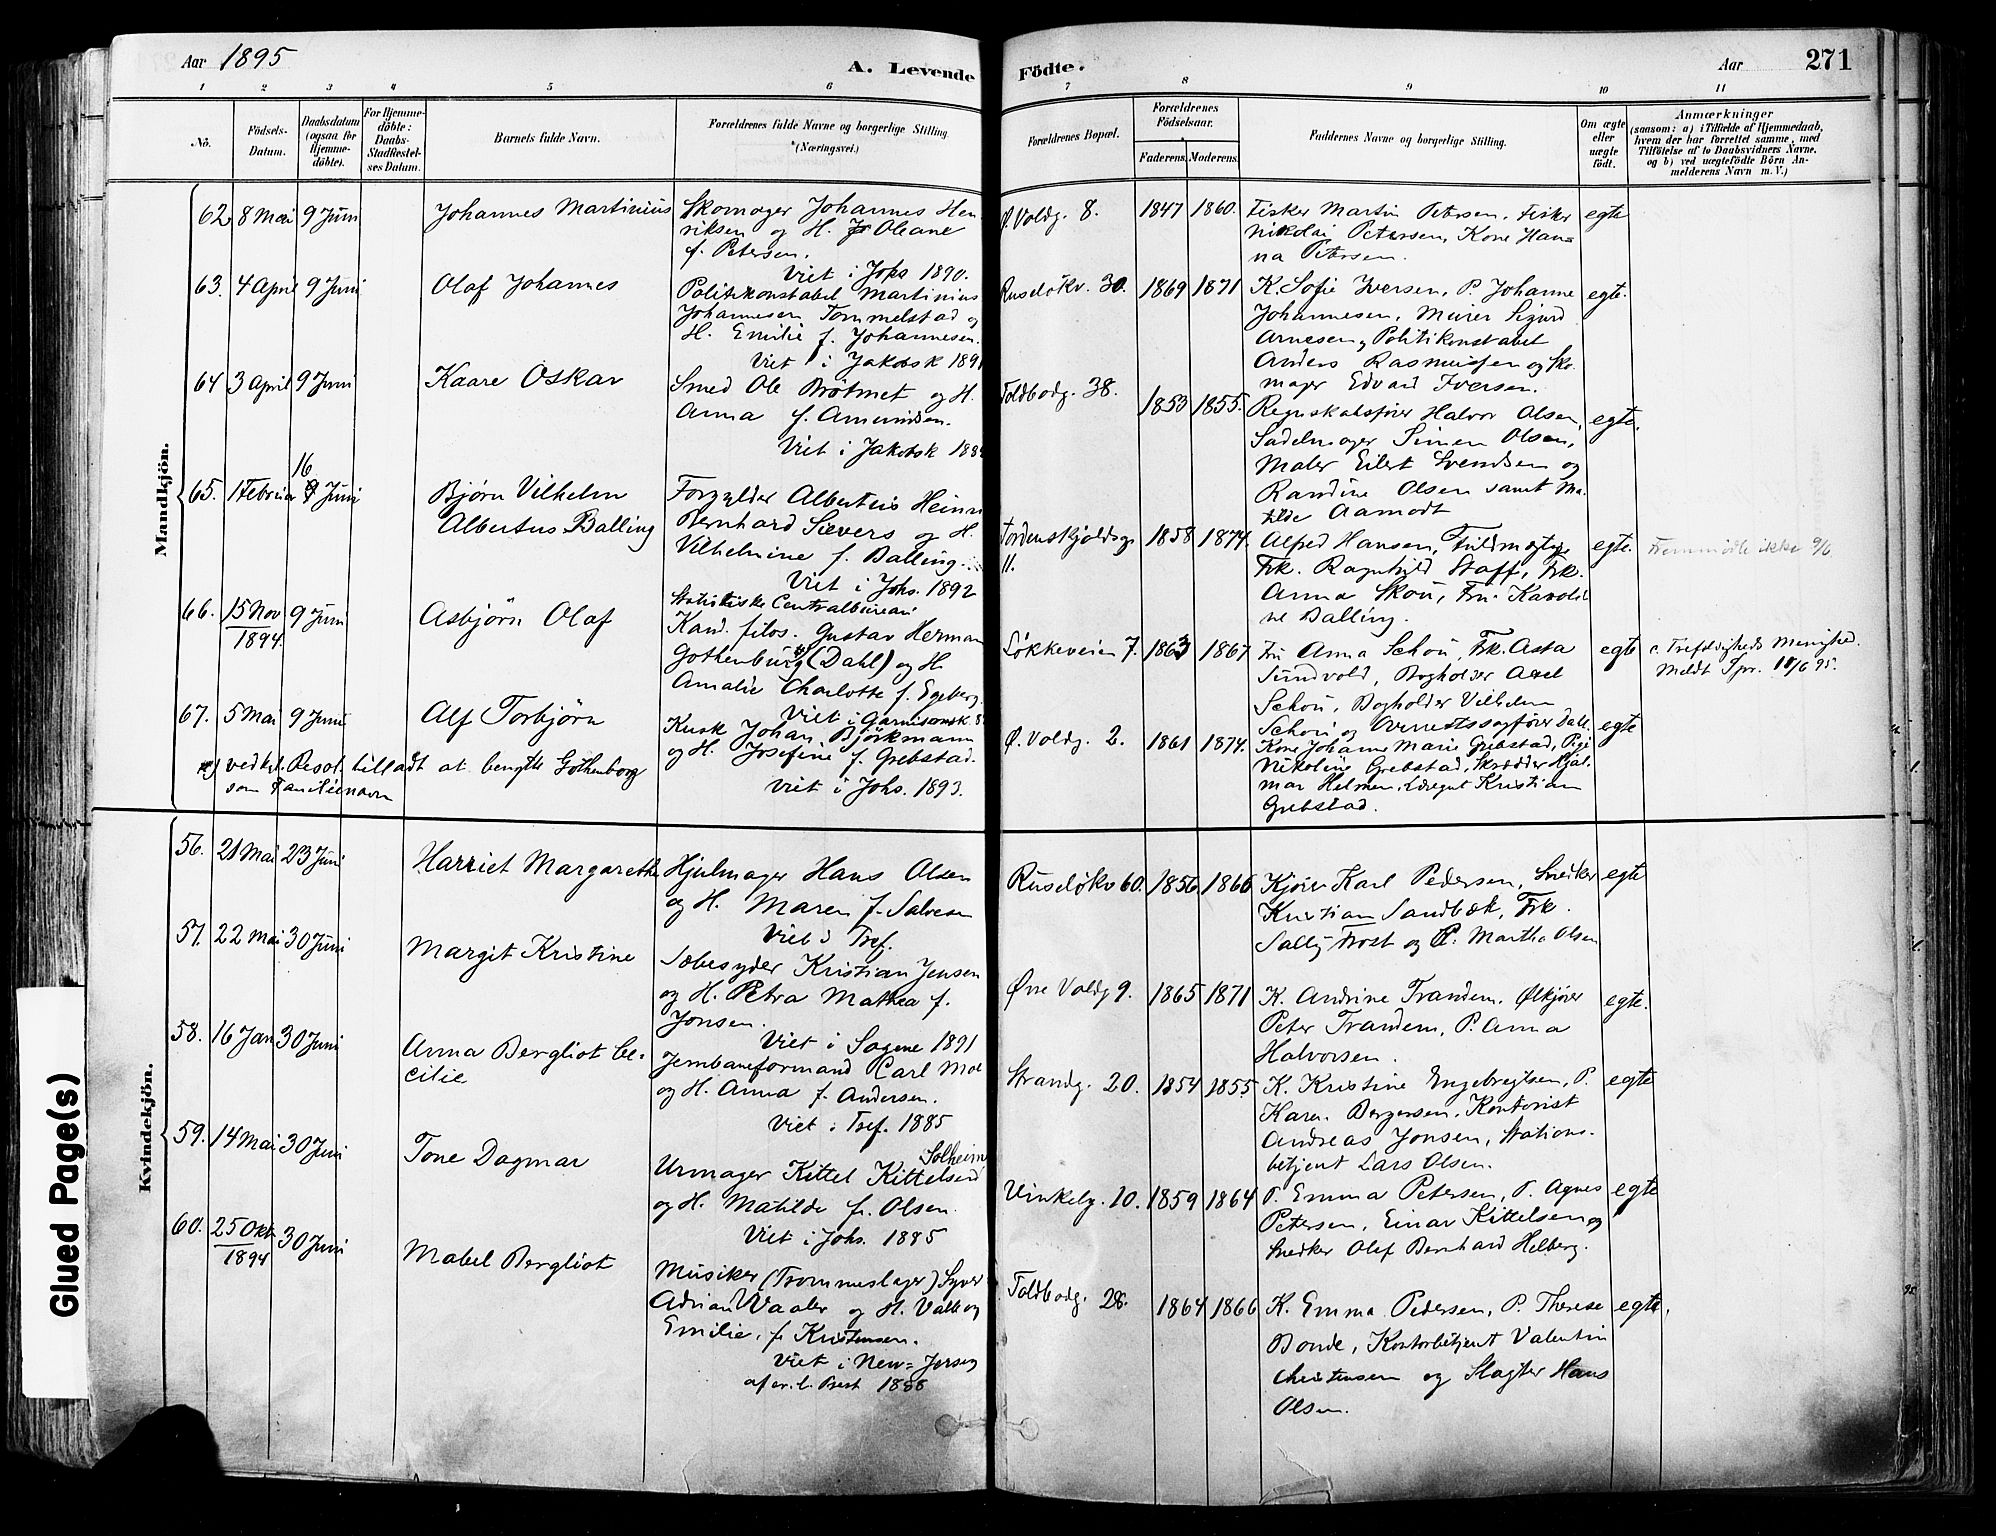 Aar 1895
A. Levende
1 2 3 4 5 6
No.
Födsels-
Datum.
Daabsdatum
(ogsaa for
Hjemme-
döbte).
For Hjemme-
döbte:
Daabs-
Stadfæstel-
ses Datum.
Barnets fulde Navn.
Forældrenes fulde Navne og borgerlige Stilling.
(Næringsvei.)
Mandkjön.
62 8 Mai 9 Juni Johannes Martinius
Skomager Johannes Hen-
riksen og H. Oleane
f. Petersen.
Viet i Johs 1890.
63. 4 April 9 Juni Olaf Johannes
Politikonstabel Martinius
Johannesen Tommelstad og
H. Emilie f. Johannesen.
Viet i Jakobsk 1891
64 3 April 9 Juni Kaare Oskar
Smed Ole Brötmet og H.
Anna f. Amundsen.
Viet i Jakobsk 188
65. 1 Februar 16 Juni Bjørn Vilhelm
Albertus Balling
Forgylder Albertus Heinr
Bernhard Sievers og H.
Vilhelmine f. Balling.
Viet i Johs. 1892
66. 15 Nov
1894. 9 Juni Asbjörn Olaf
Statistiske Centralbureau
Kand. filos. Gustav Herman
Gothenburg (Dahl) og H.
Amalie Charlotte f. Egeberg.
Viet i Garnisonsk.
67. 5 Mai 9 Juni Alf Torbjörn
Kusk Johan Björkmann
og H. Josefine f. Grebstad.
Viet i Johs. 1893.
ved kgl. Resol. tilladt at benytte Gothenborg
som Familienavn
Kvindekjön.
56. 21 Mai 23 Juni Harriet Margarethe
Hjulmager Hans Olsen
og H. Maren f. Salvesen
Viet i Tref.
57. 22 Mai 30 Juni Margit Kristine
Sæbesyder Kristian Jensen
og H. Petra Mathea f.
Jonsen.
Viet i Sagene 1891
58. 16 Jan 30 Juni Anna Bergliot Ce-
cilie
Jernbaneformand Carl Moe
og H. Anna f. Andersen.
Viet i Tref. 1885
59. 14 Mai 30 Juni Tone Dagmar
Solheim
Urmager Kittel Kittelsen
og H. Matilde f. Olsen.
Viet i Johs. 1885
60. 25 Okt
1894 30 Juni Mabel Bergliot
Musiker (Trommeslager) Syver
Adrian Waaler og H. Valborg
Emilie, f. Kristensen.
Viet i New-Jersey
af ev. l. Prest 1888
Glued Page(s)
Födte.
Aar 271
7 8 9 10 11
Forældrenes Bopæl.
Forældrenes
Födselsaar.
Faderens. Moderens.
Faddernes Navne og borgerlige Stilling.
Om ægte
eller
uægte
födt.
Anmærkninger
(saasom: a) i Tilfælde af Hjemmedaab,
hvem der har forrettet samme, med
Tilföielse af to Daabsvidners Navne.
og b) ved uægtefödte Börn An-
melderens Navn m. V.)
Ø. Voldg. 8. 1847 1860. Fisker Martin Petersen, Fisker egte
Nikolai Petersen, Kone Han-
na Petersen.
Rusløkv. 30. 1869 1871 K. Sofie Iversen, P. Johanne egte.
Johannesen, Murer Sigurd
Arnesen, Politikonstabel
Anders Rasmussen og Sko-
mager Edvard Iversen.
Toldbodg. 38. 1853 1855. Regnskabsfører Halvor Olsen, egte.
Sadelmager Simen Olsen,
Maler Eilert Svendsen og
Randine Olsen samt Ma-
tilde Aamodt
Tordenskjoldsg.
11. 1858 1874. Alfred Hansen, Fuldmægtig egte. Fremmödte ikke 9/6
Frk. Ragnhild Staff, Frk.
Anna Skou, Fru Karoli-
ne Balling.
Løkkeveien 7. 1863 1867 Fru Anna Schou, Frk. Asta egte Trefoldigheds Menighed.
Sundvold, Bogholder Axel Meldt Spr. 11/6 95.
Schou, Bogholder Vilhelm
Schou og Overretssagfører Dahl
Ø. Voldg. 2. 1861 1874. Kone Johanne Marie Grebstad, Pige egte
Nikoline Grebstad, Skrædder Hjal-
mar Helmen, Læregut Kristian
Grebstad.
Rusløkv 60. 1856 1866 Kjører Karl Pedersen, Snedker egte
Kristian Sandbæk, Frk.
Sally Frost og P. Martha Olsen
Øvre Voldg 9. 1865 1871 K. Andrine Trandem, Ølkjører egte.
Peter Trandem, P. Anna
Halvorsen.
Strandg. 20. 1854 1855 K. Kristine Engebregtsen, P. egte
Karen Bergersen, Kontorist
Andreas Jonsen, Stations-
betjent Lars Olsen.
Vinkelg. 10. 1859 1864 P. Emma Petersen, P. Agnes egte
Petersen, Einar Kittelsen og
Snedker Olaf Bernhard Helberg.
Toldbodg. 28. 1864 1866 K. Emma Pedersen, P. Therese egte.
Bonde, Kontorbetjent Valentin
Christensen og Slagter Hans
Olsen.